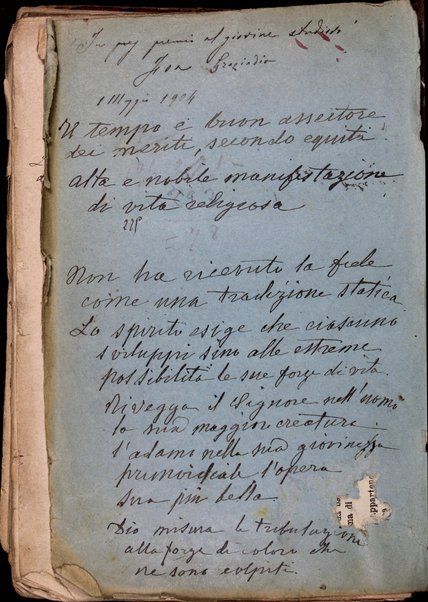 premio al giovine studioso
Isa Graziadio
1 Maggio 1904
Il tempo è buon assertore
dei meriti, secondo equità
alta e nobile manifestazione
di vita religiosa
Non ha ricevuto la fede
come una tradizione statica
Lo spirito esige che ciascuno
sviluppi sino alle estreme
possibilità le sue forze di vita.
Rivegga il Signore nell'uomo
la sua maggior creatura
l'adami nella sua giovinezza
primordiale l'opera
sua più bella
Dio misura le tribulazioni
alla forza di coloro che
ne sono colpiti.
ma di
appartene